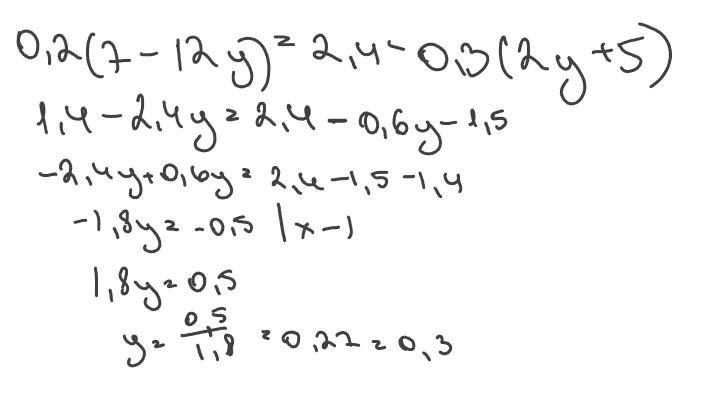 0,2(7-12y)=2,4-0,3(2y+5)
1,4-2,4y=2,4-0,6y-1,5
-2,4y+0,6y=2,4-1,5-1,4
-1,8y=-0,5 |x-1
1,8y=0,5
y=0,5/1,8=0,27=0,3